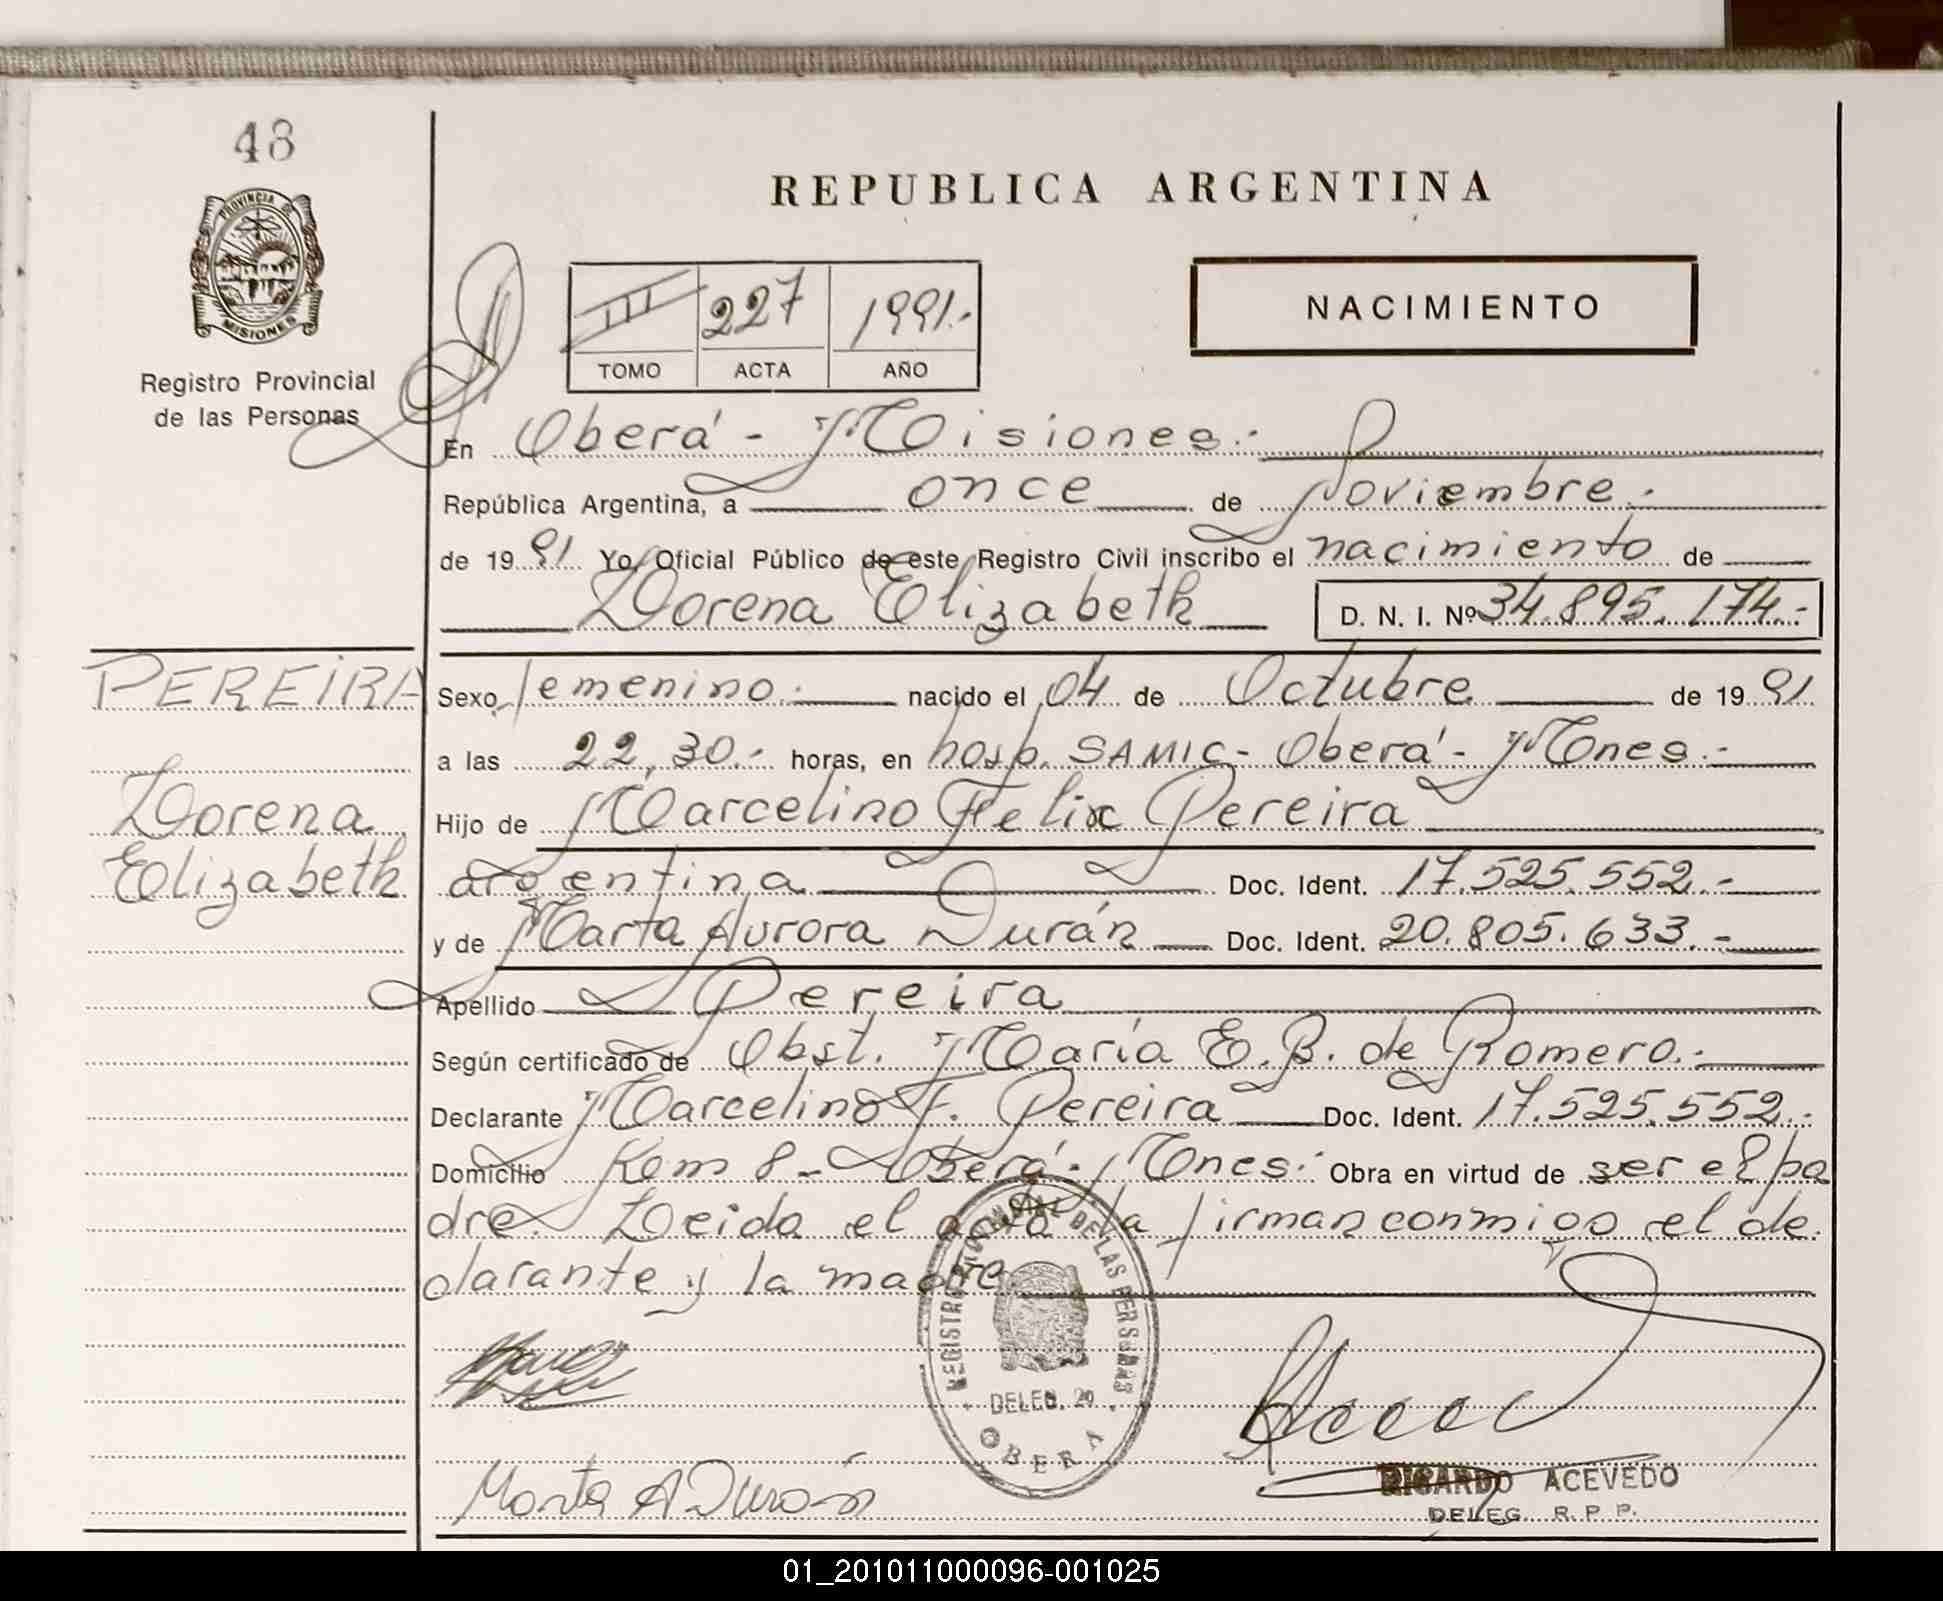 48
PROVINCIA DE
MISIONES
Registro Provincial
de las Personas
REPUBLICA ARGENTINA
III 227 1991.-
TOMO ACTA AÑO
NACIMIENTO
En Oberá - Misiones.-
República Argentina, a once de Noviembre.-
de 1991 Yo, Oficial Público de este Registro Civil inscribo el nacimiento de
Lorena Elizabeth D. N. I. Nº 34.895.174.-
PEREIRA
Lorena
Elizabeth
Sexo femenino.- nacido el 04 de Octubre de 1991
a las 22,30.- horas, en hosp. SAMIC - Oberá - Mnes.-
Hijo de Marcelino Felix Pereira
argentina Doc. Ident. 17.525.552.-
y de Marta Aurora Durán Doc. Ident. 20.805.633.-
Apellido Pereira
Según certificado de Obst. María E. B. de Romero.-
Declarante Marcelino F. Pereira Doc. Ident. 17.525.552.-
Domicilio Km 8 - Oberá - Mnes.- Obra en virtud de ser el pa
dre. Leida el acta la firman conmigo el de-
clarante y la madre
REGISTRO PROVINCIAL DE LAS PERSONAS
DELEG. 20
OBERA
Marta A Durán
RICARDO ACEVEDO
DELEG. R. P. P.
01_201011000096-001025